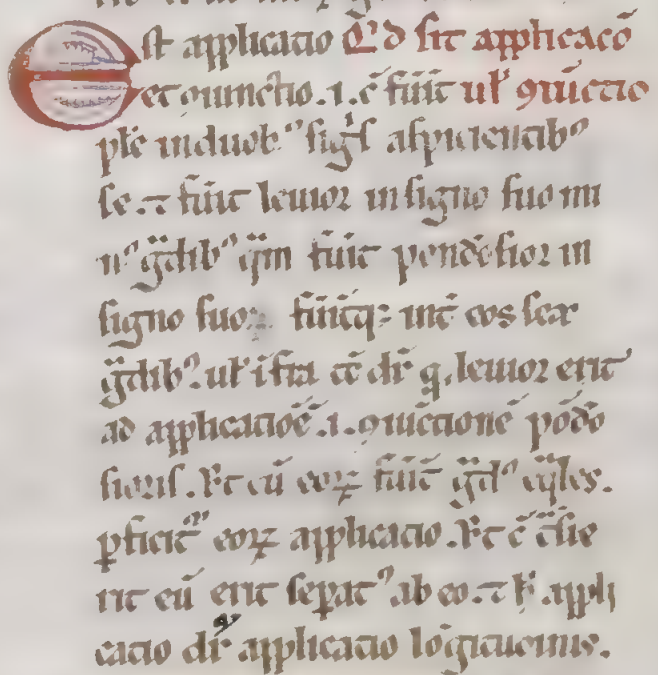 Est applicatio Qd sit applicacō
et ɔiunctio .i. cū fu̾it ul' ɔiūctio
plē in duob; sig̾s aspicientib;
se. ⁊ fu̾it leuior in signo suo mi
n; g̾dib; q̄m fu̾it pondōsior in
signo suo; fu̾itq; int̄ eos sex
g̾dib; ul' īfra tc̄ dr̄ q, leuior erit
ad applicationē .i. ɔiūctionē pōdo
sioris. Et cū eoꝝ fu̾it g̾d; eq̄les.
ꝑficit᷑ eoꝝ applicatio. Et cū t̾nsie
rit eū erit sepat; ab eo. ⁊ h' appli
catio dr̄ applicatio lōgitudinis.